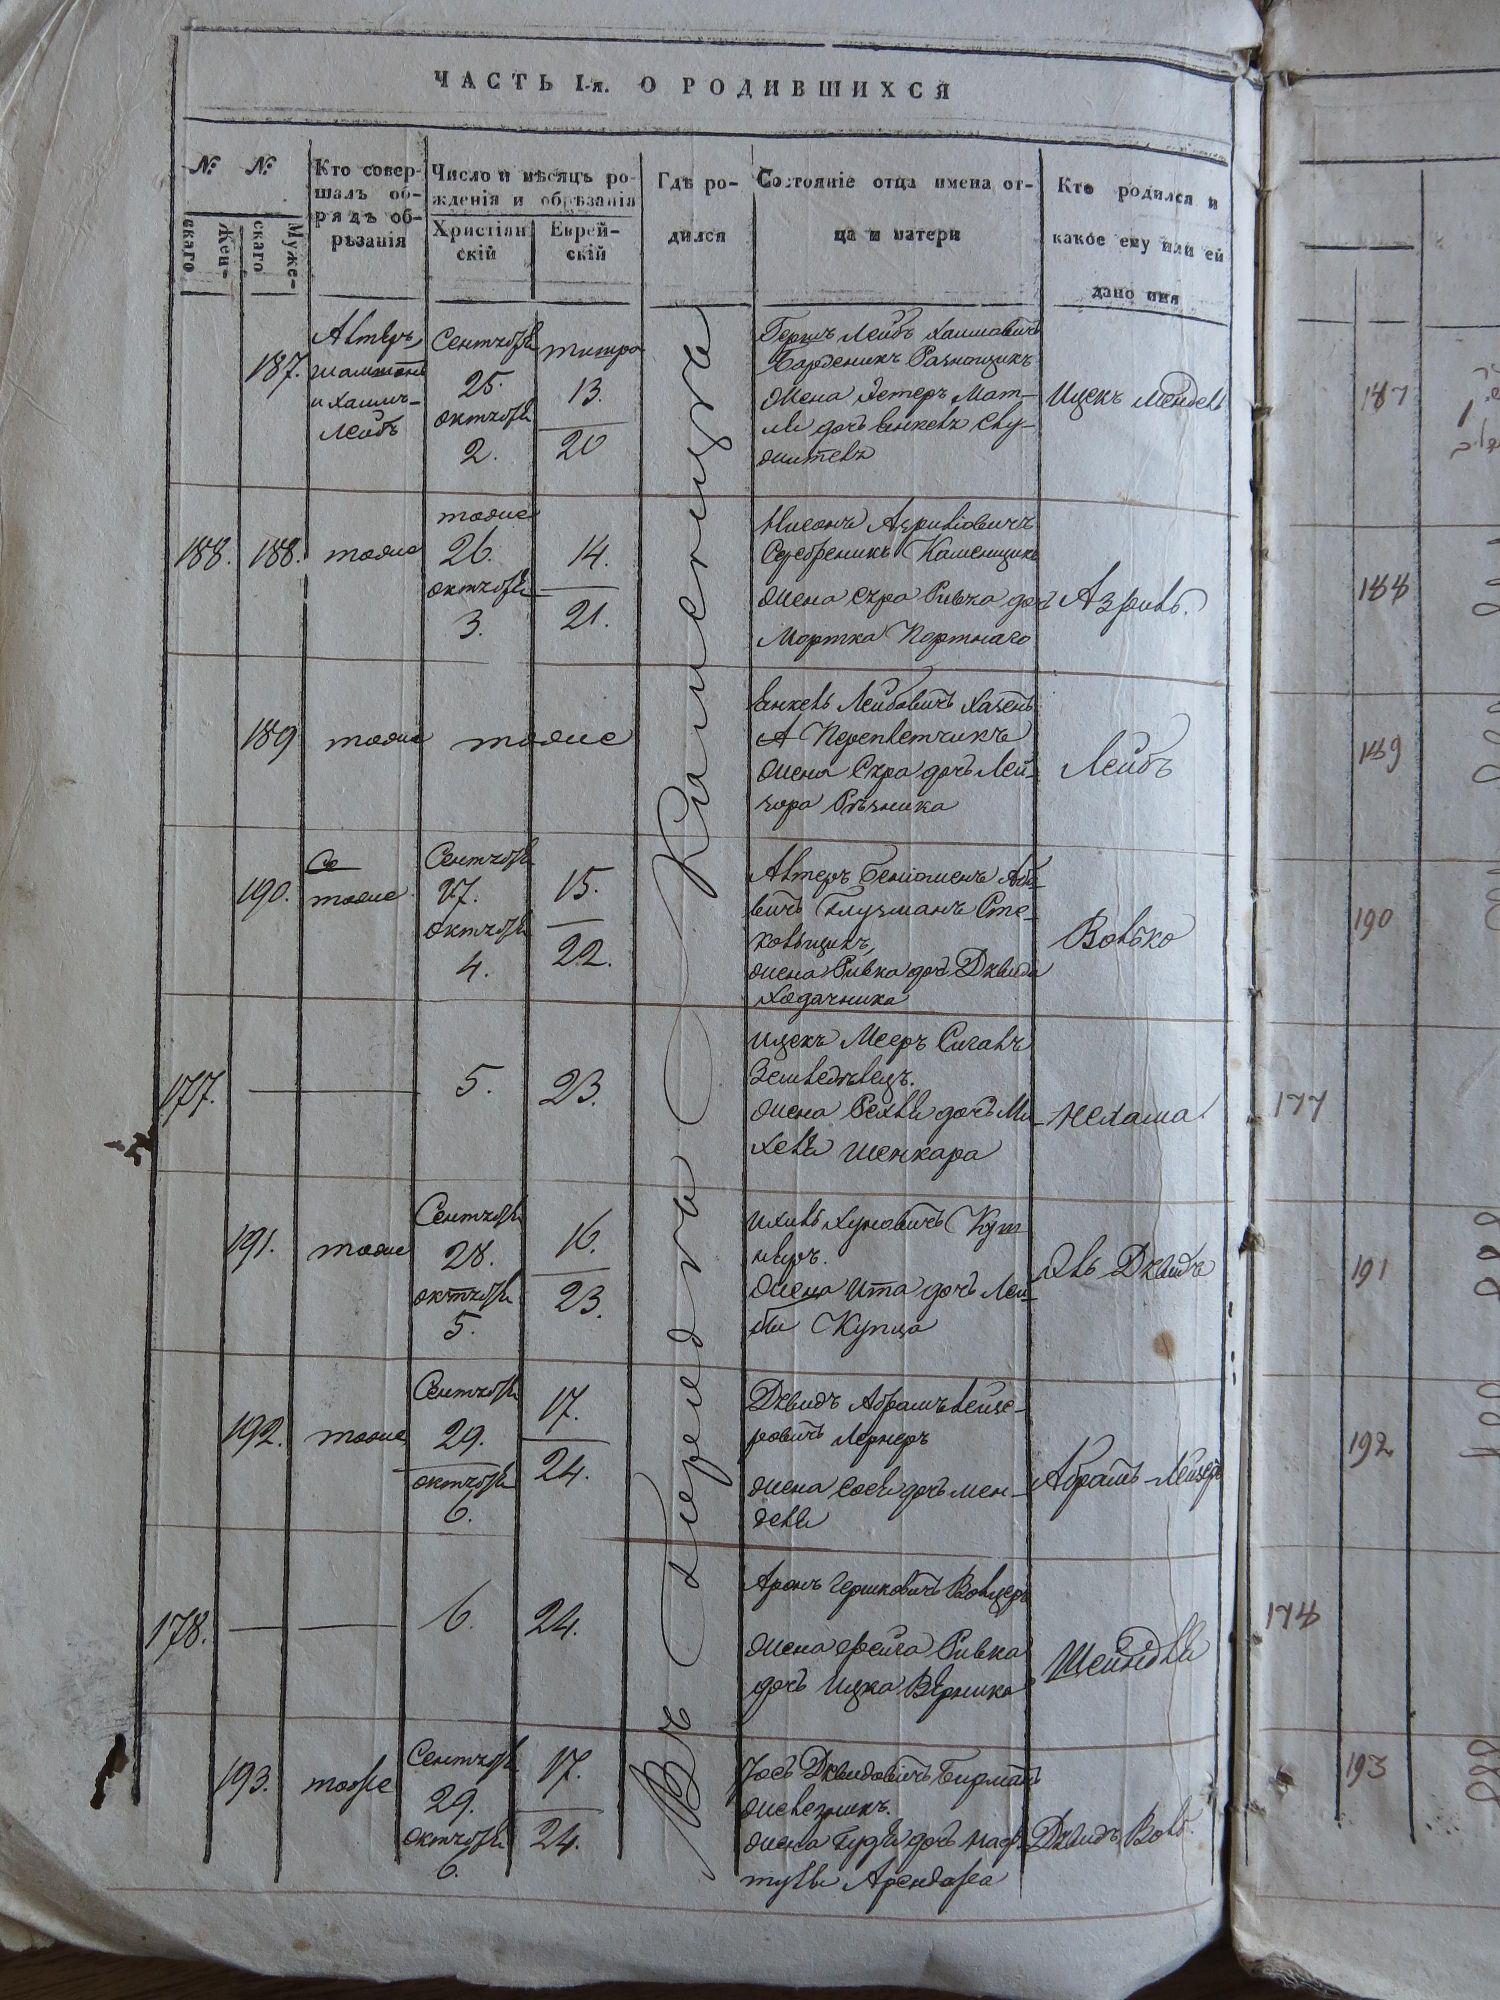 ЧАСТЬ I-я. О РОДИВШИХСЯ
№ №
Жен-
скаго
Муже-
скаго
Кто совер-
шалъ об-
рядъ об-
рѣзанія
Число и мѣсяцъ ро-
жденія и обрѣзанія
Христіян
скій
Еврей-
скій
Гдѣ ро-
дился
Состояніе отца имена от-
ца и матери
Кто родился и
какое ему или ей
дано имя
Въ Бережка Каменица
187.
и Хаимъ-
Лейбъ
Сентября
25.
октября
2.
тишра
13.
20
Гершъ Лейбъ Хаимовичъ
жена Эстеръ Мат-
ли дочь Янкеля
Ицекъ Мендель
187
188. 188.
тоже
тоже
26.
октября
3.
14.
21.
Нисонъ Азриліовичъ
Серебреникъ Каменщикъ
жена Сура Ривка дочь
Мортка Портнаго
Азриль.
188
189
тоже
тоже
Янкель Лейбовичъ Хазенъ
А Переплетчикъ
жена Сура дочь Лей-
зора Резника
Лейбъ
189
190.
Се
тоже
Сентября
27.
октября
4.
15.
22.
Алтеръ Беніоменъ
вичъ Глузманъ Сте-
кольщикъ,
жена Ривка дочь Двида
Ходачника
Волько
190
177.
5.
23.
Ицекъ Мееръ Сигалъ
Земледѣлецъ.
жена Рехля дочь Ми-
хеля Шенкара
Нехама
177
191.
тоже
Сентября
28.
октября
5.
16.
23.
Ихиль Хуновичъ Куш
ниръ.
жена Ита дочь Лей-
би Купца
Двидъ
191
192.
тоже
Сентября
29.
октября
6.
17.
24.
Двидъ Абрамъ Лейзе-
ровичъ Лернеръ
жена Сося дочь Мен-
деля
Абрамъ-Лейзеръ
192
178.
6.
24.
Аронъ Гершковичъ
жена Фейга Ривка
дочь Ицка Верника
Шейндля
178
193.
тоже
Сентября
29.
октября
6.
17.
24.
Іосъ Двидовичъ Бирманъ
жена Будя дочь Наф-
тули Арендара
Двидъ Воль.
193